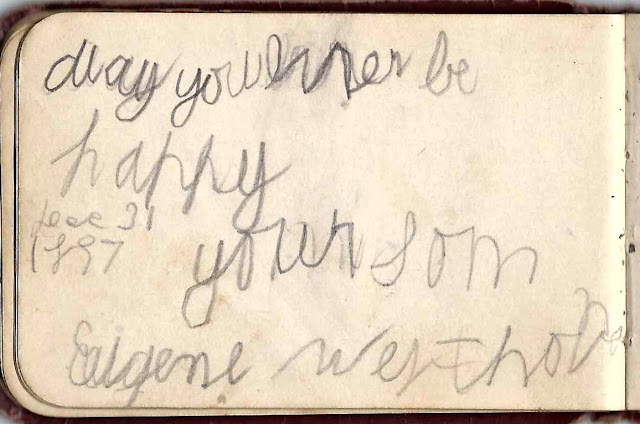 May you ever be
happy
Dec 31
1897
your son
Eugene